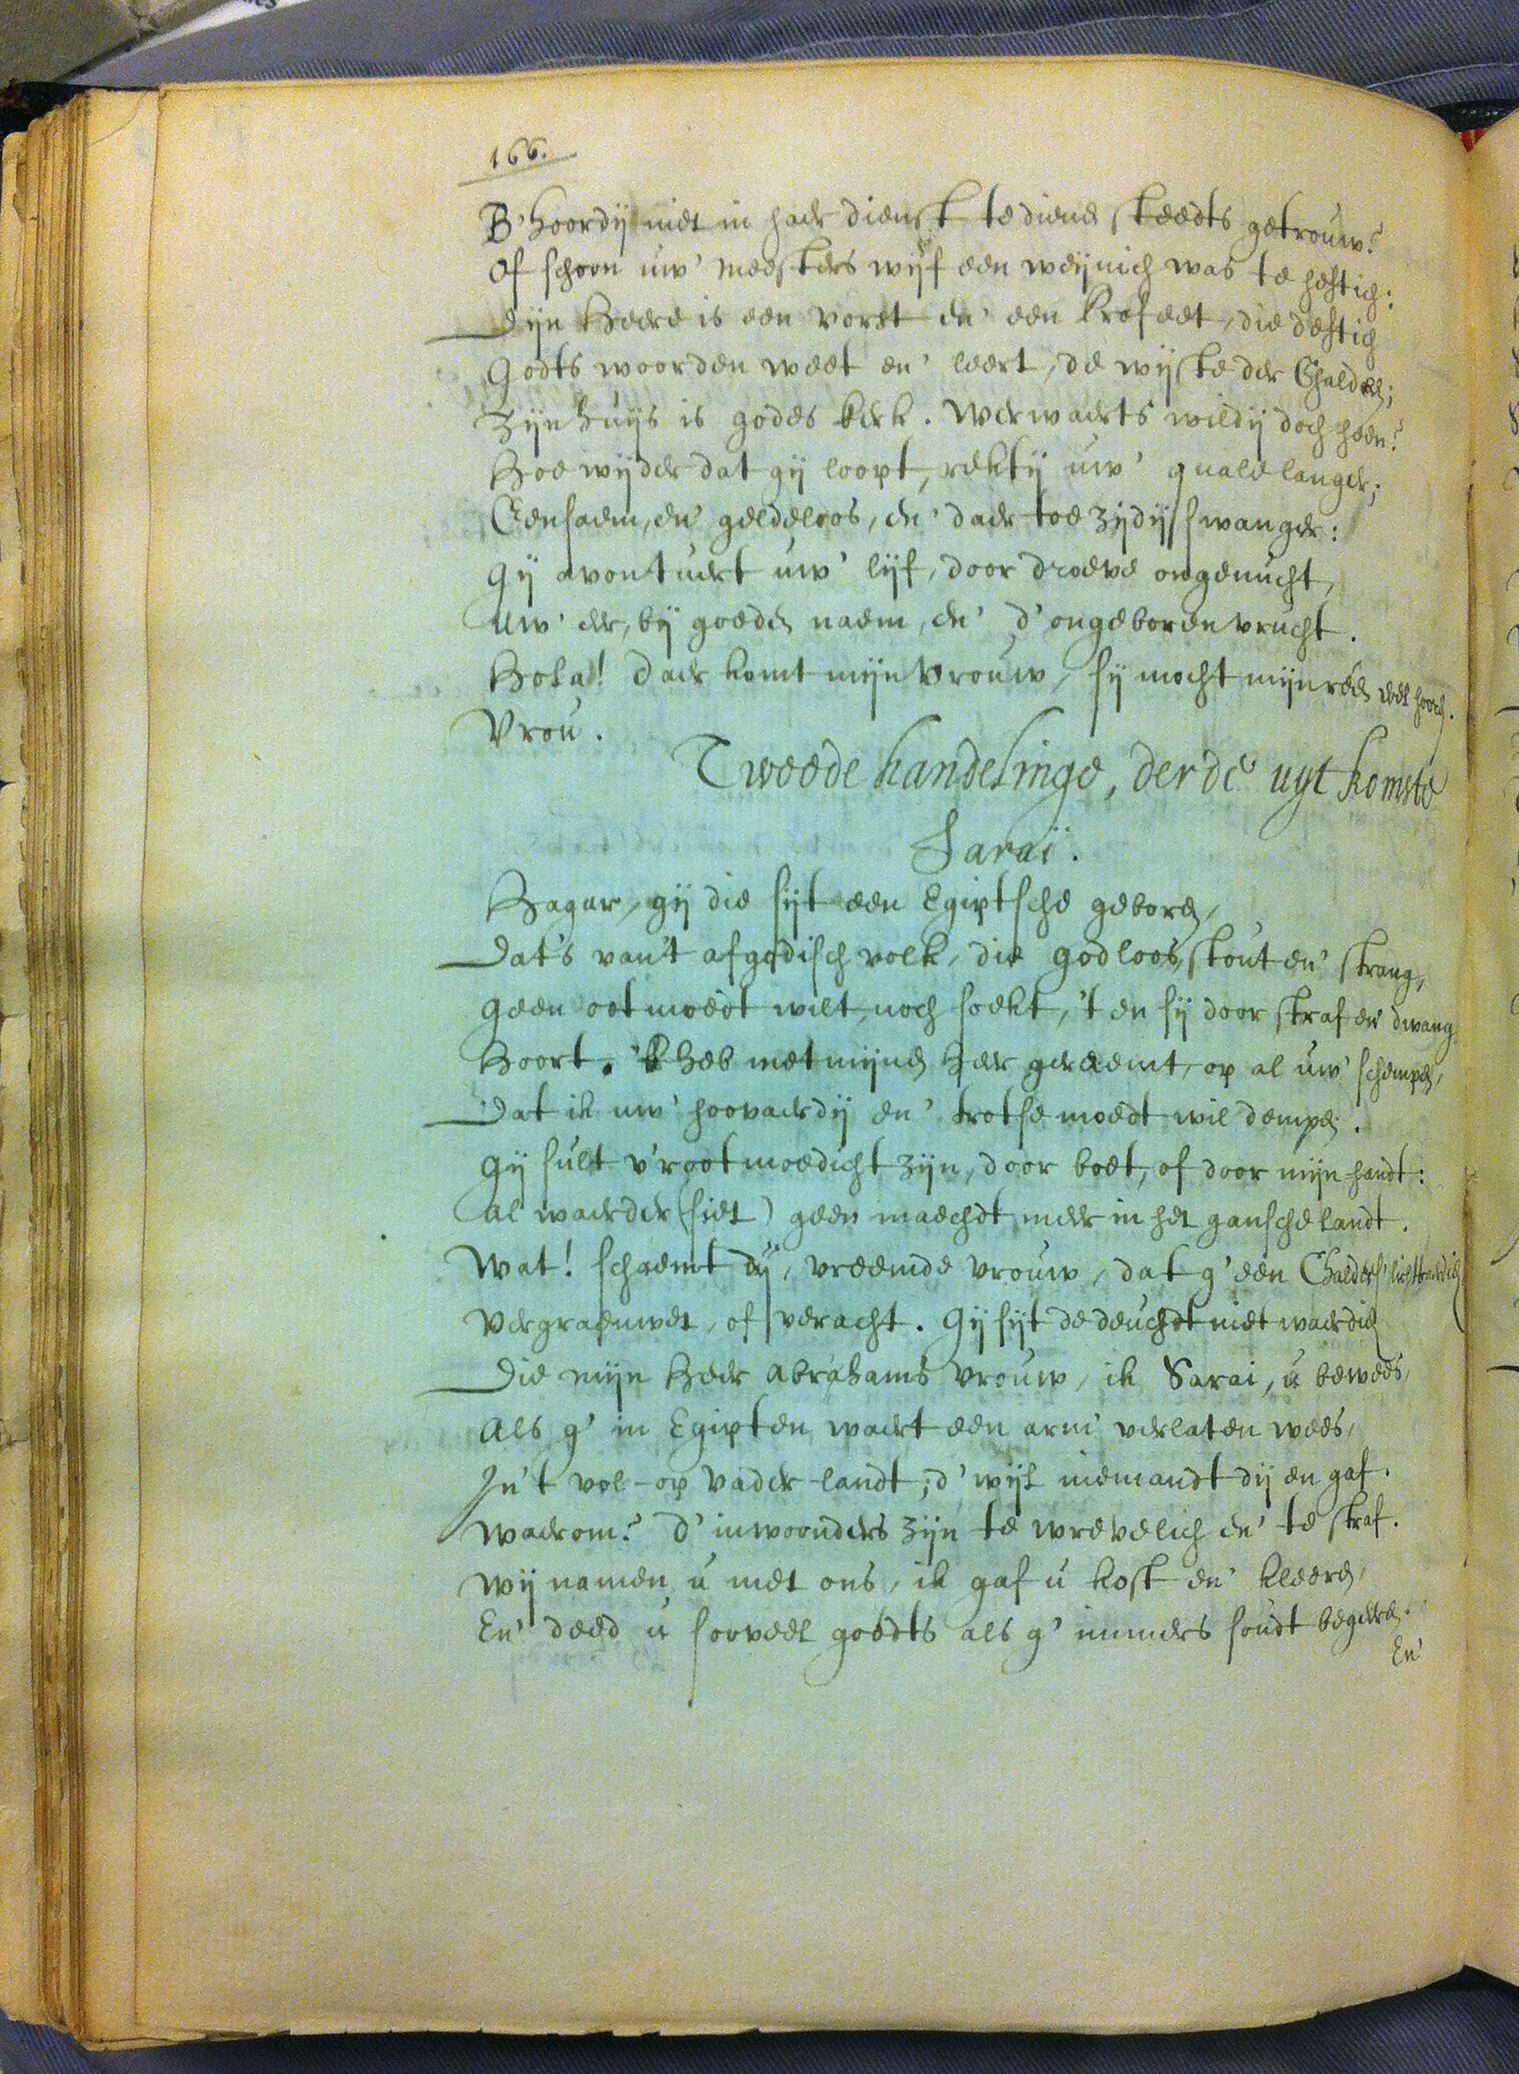 166.
B'hoordij niet in haer dienst te diene steedts getrouw?
Of schoon uw' meesters wijf een weijnich was te heftich:
Dijn Heere is een vorst en' een Profeet, die deftich
Godts woorden weet en' leert, de wijste der Chaldeen;
Zijn huijs is godes kerk. Werwaerts wildij doch heen?
Hoe wijder dat gij loopt, rektij uw' quale langer;
Eensaem, en' geldeloos, en' daer toe zijdij swanger:
Gij avontuert uw' lijf, door droeve ongenucht,
Uw' eer, bij goeden naem, en' d'ongeboren vrucht.
Hola! daer komt mijn Vrouw, sij mocht mijn reen wel hooren.
Vrou.
Tweede handelinge, derde uytkomste
Saraï.
Hagar, gij die sijt een Egiptsche geboren,
Dat's van't afgodisch volk, die godloos, stout en' strang,
Geen ootmoedt wilt, noch soekt, 't en sij door straf en' dwang
Hoort. 'k Heb met mijnen Heer geraemt, op al uw' schempen,
Dat ik uw' hoovaerdij en' trotse moedt wil dempen.
Gij sult v'rootmoedicht zijn, door boet, of door mijn handt:
Al waerder (siet) geen maechdt meer in het gansche landt.
Wat! schaemt dij, vreemde vrouw, dat g'een Chaldeers' lichtvaerdich
Vergraeuwet, of veracht. Gij sijt de deuchdt niet waerdich
Die mijn Heer Abrahams vrouw, ik Sarai, u bewees,
Als g' in Egipten waert een arm' verlaten wees,
In't vol-op vader-landt; d'wijl niemandt dij en gaf.
Waerom? d'inwoonders zijn te wrevelich en' te straf.
Wij namen u met ons, ik gaf u kost en' kleeren,
En' deed u sooveel goedts als g' immers soudt begeeren.
En'